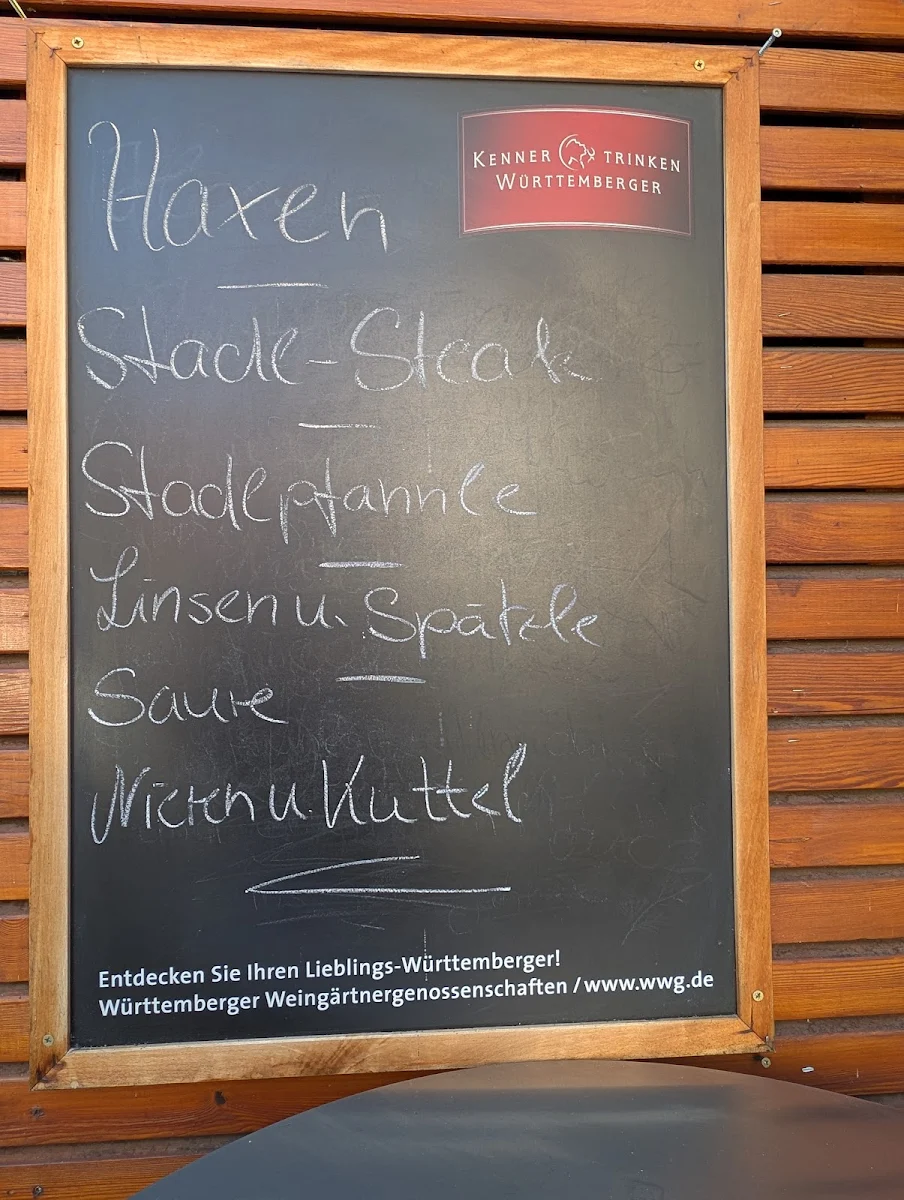 KENNER TRINKEN
WÜRTTEMBERGER
Haxen
Stadl-Steak
Stadlpfannle
Linsen u. Spätzle
Saure
Nieren u. Kuttel
Entdecken Sie Ihren Lieblings-Württemberger!
Württemberger Weingärtnergenossenschaften / www.wwg.de